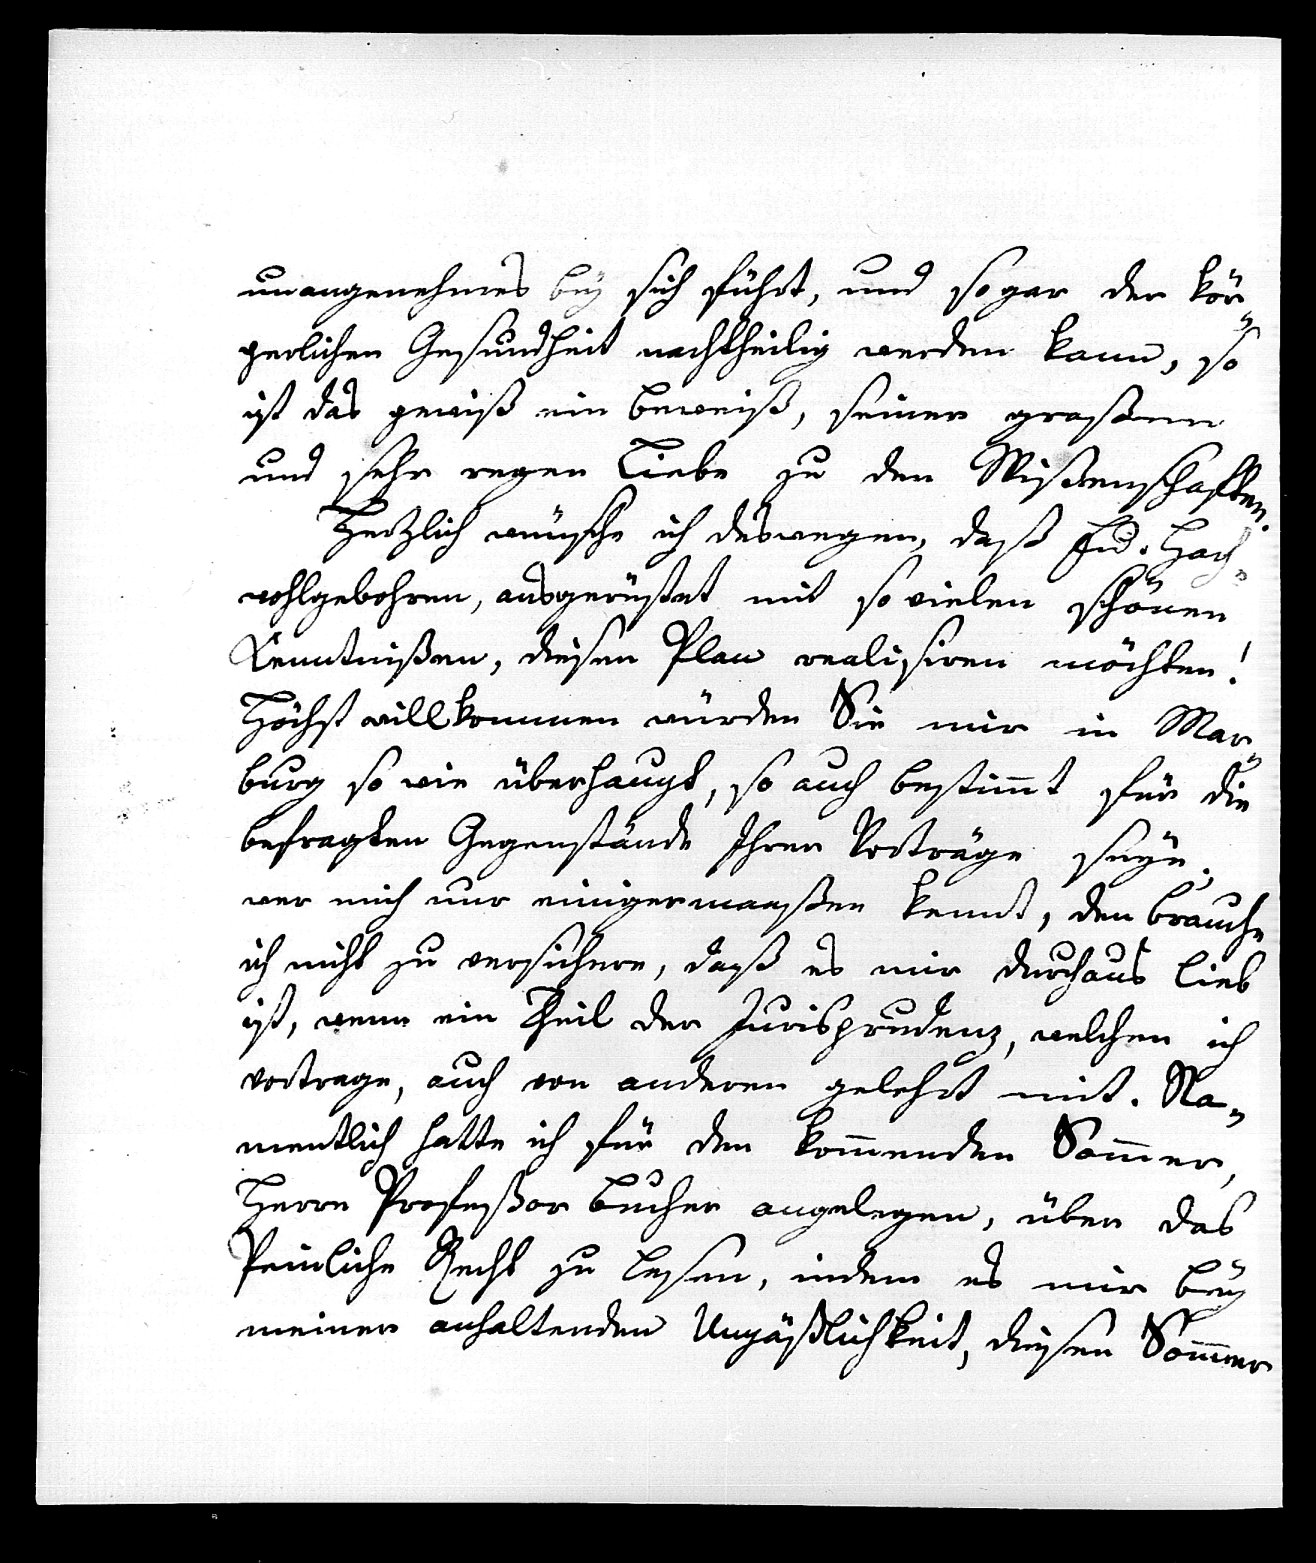 unangenehmes bey sich führt, und sogar der kör-
perlichen Gesundheit nachtheilig werden kann, so
ist das gewiß ein beweiß, seiner großen
und sehr regen Liebe zu den Wißenschaften.
Herzlich wünsche ich deswegen, daß Ew. Hoch-
wohlgebohren, ausgerüstet mit so vielen schönen
Kenntnißen, diesen Plan realisiren möchten!
Höchst willkommen würden Sie mir in Mar-
burg so wie überhaupt, so auch bestim̄t für die
befragten Gegenstände Ihrer Vorträge seyn,
wer mich nur einigermaaßen kennt, den brauche
ich nicht zu versichern, daß es mir durchaus lieb
ist, wenn ein Theil der Jurisprudenz, welchen ich
vortrage, auch von anderen gelehrt wird. Na-
mentlich hatte ich für den kom̄enden Som̄er,
Herrn Profeßor Bucher angelegen, über das
Peinliche Recht zu lesen, indem es mir bey
meiner anhaltenden Unpäßlichkeit, diesen Som̄er